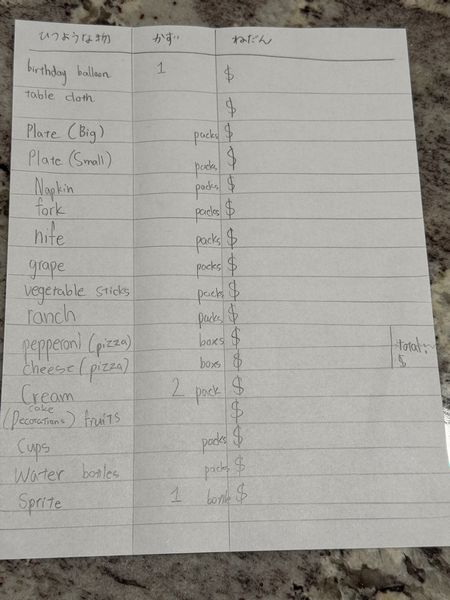 ひつような物 かず ねだん
birthday balloon 1 $
table cloth $
Plate (Big) packs $
Plate (Small) packs $
Napkin packs $
fork packs $
nife packs $
grape packs $
vegetable sticks packs $
ranch packs $
pepperoni (pizza) boxs $ total:
cheese (pizza) boxs $ $
Cream 2 pack $
cake
(Decorations) fruits $
Cups packs $
Water bottles packs $
Sprite 1 bottle $